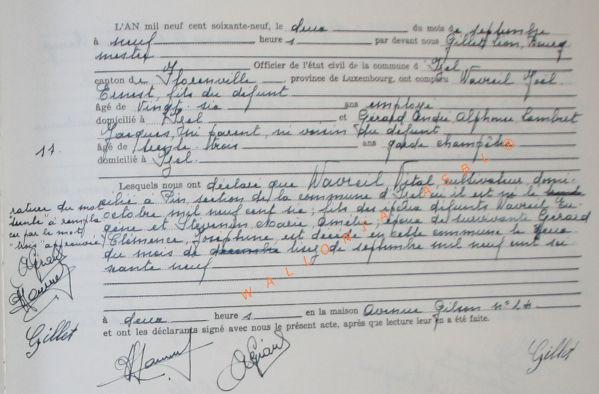 L'AN mil neuf cent soixante-neuf, le deux du mois de septembre
à neuf heure s par devant nous Gillet Léon, Bourg
mestre
Officier de l'état civil de la commune d' Izel
canton de Florenville province de Luxembourg, ont comparu Wavreil Joël
Ernest, fils du défunt
âgé de vingt six ans employé
domicilié à Izel et Gérard André Alphonse Lambert
Jacques, ni parent, ni voisin du défunt
âgé de trente trois ans garde champêtre
domicilié à Izel.
11.
Lesquels nous ont déclaré que Wavreil Vital, cultivateur, domi-
cilié à Pin section de la commune d'Izel où il est né le
octobre mil neuf cent six, fils des époux défunts Wavreil Eu-
gène et Marie Amélie, époux de survivante Gérard
Clémence, Joséphine est décédé en cette commune le deux
du mois de septembre mil neuf cent soi-
xante neuf
rature du mot
à rempla-
cer par le mot
approuvée
à deux heure s en la maison Avenue Gilson n° 24
et ont les déclarants signé avec nous le présent acte, après que lecture leur en a été faite.
Gillet
Gillet
WALLONIA ASBL ©